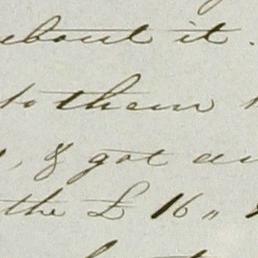 about it.
to them
, & got an
the £ 16 "